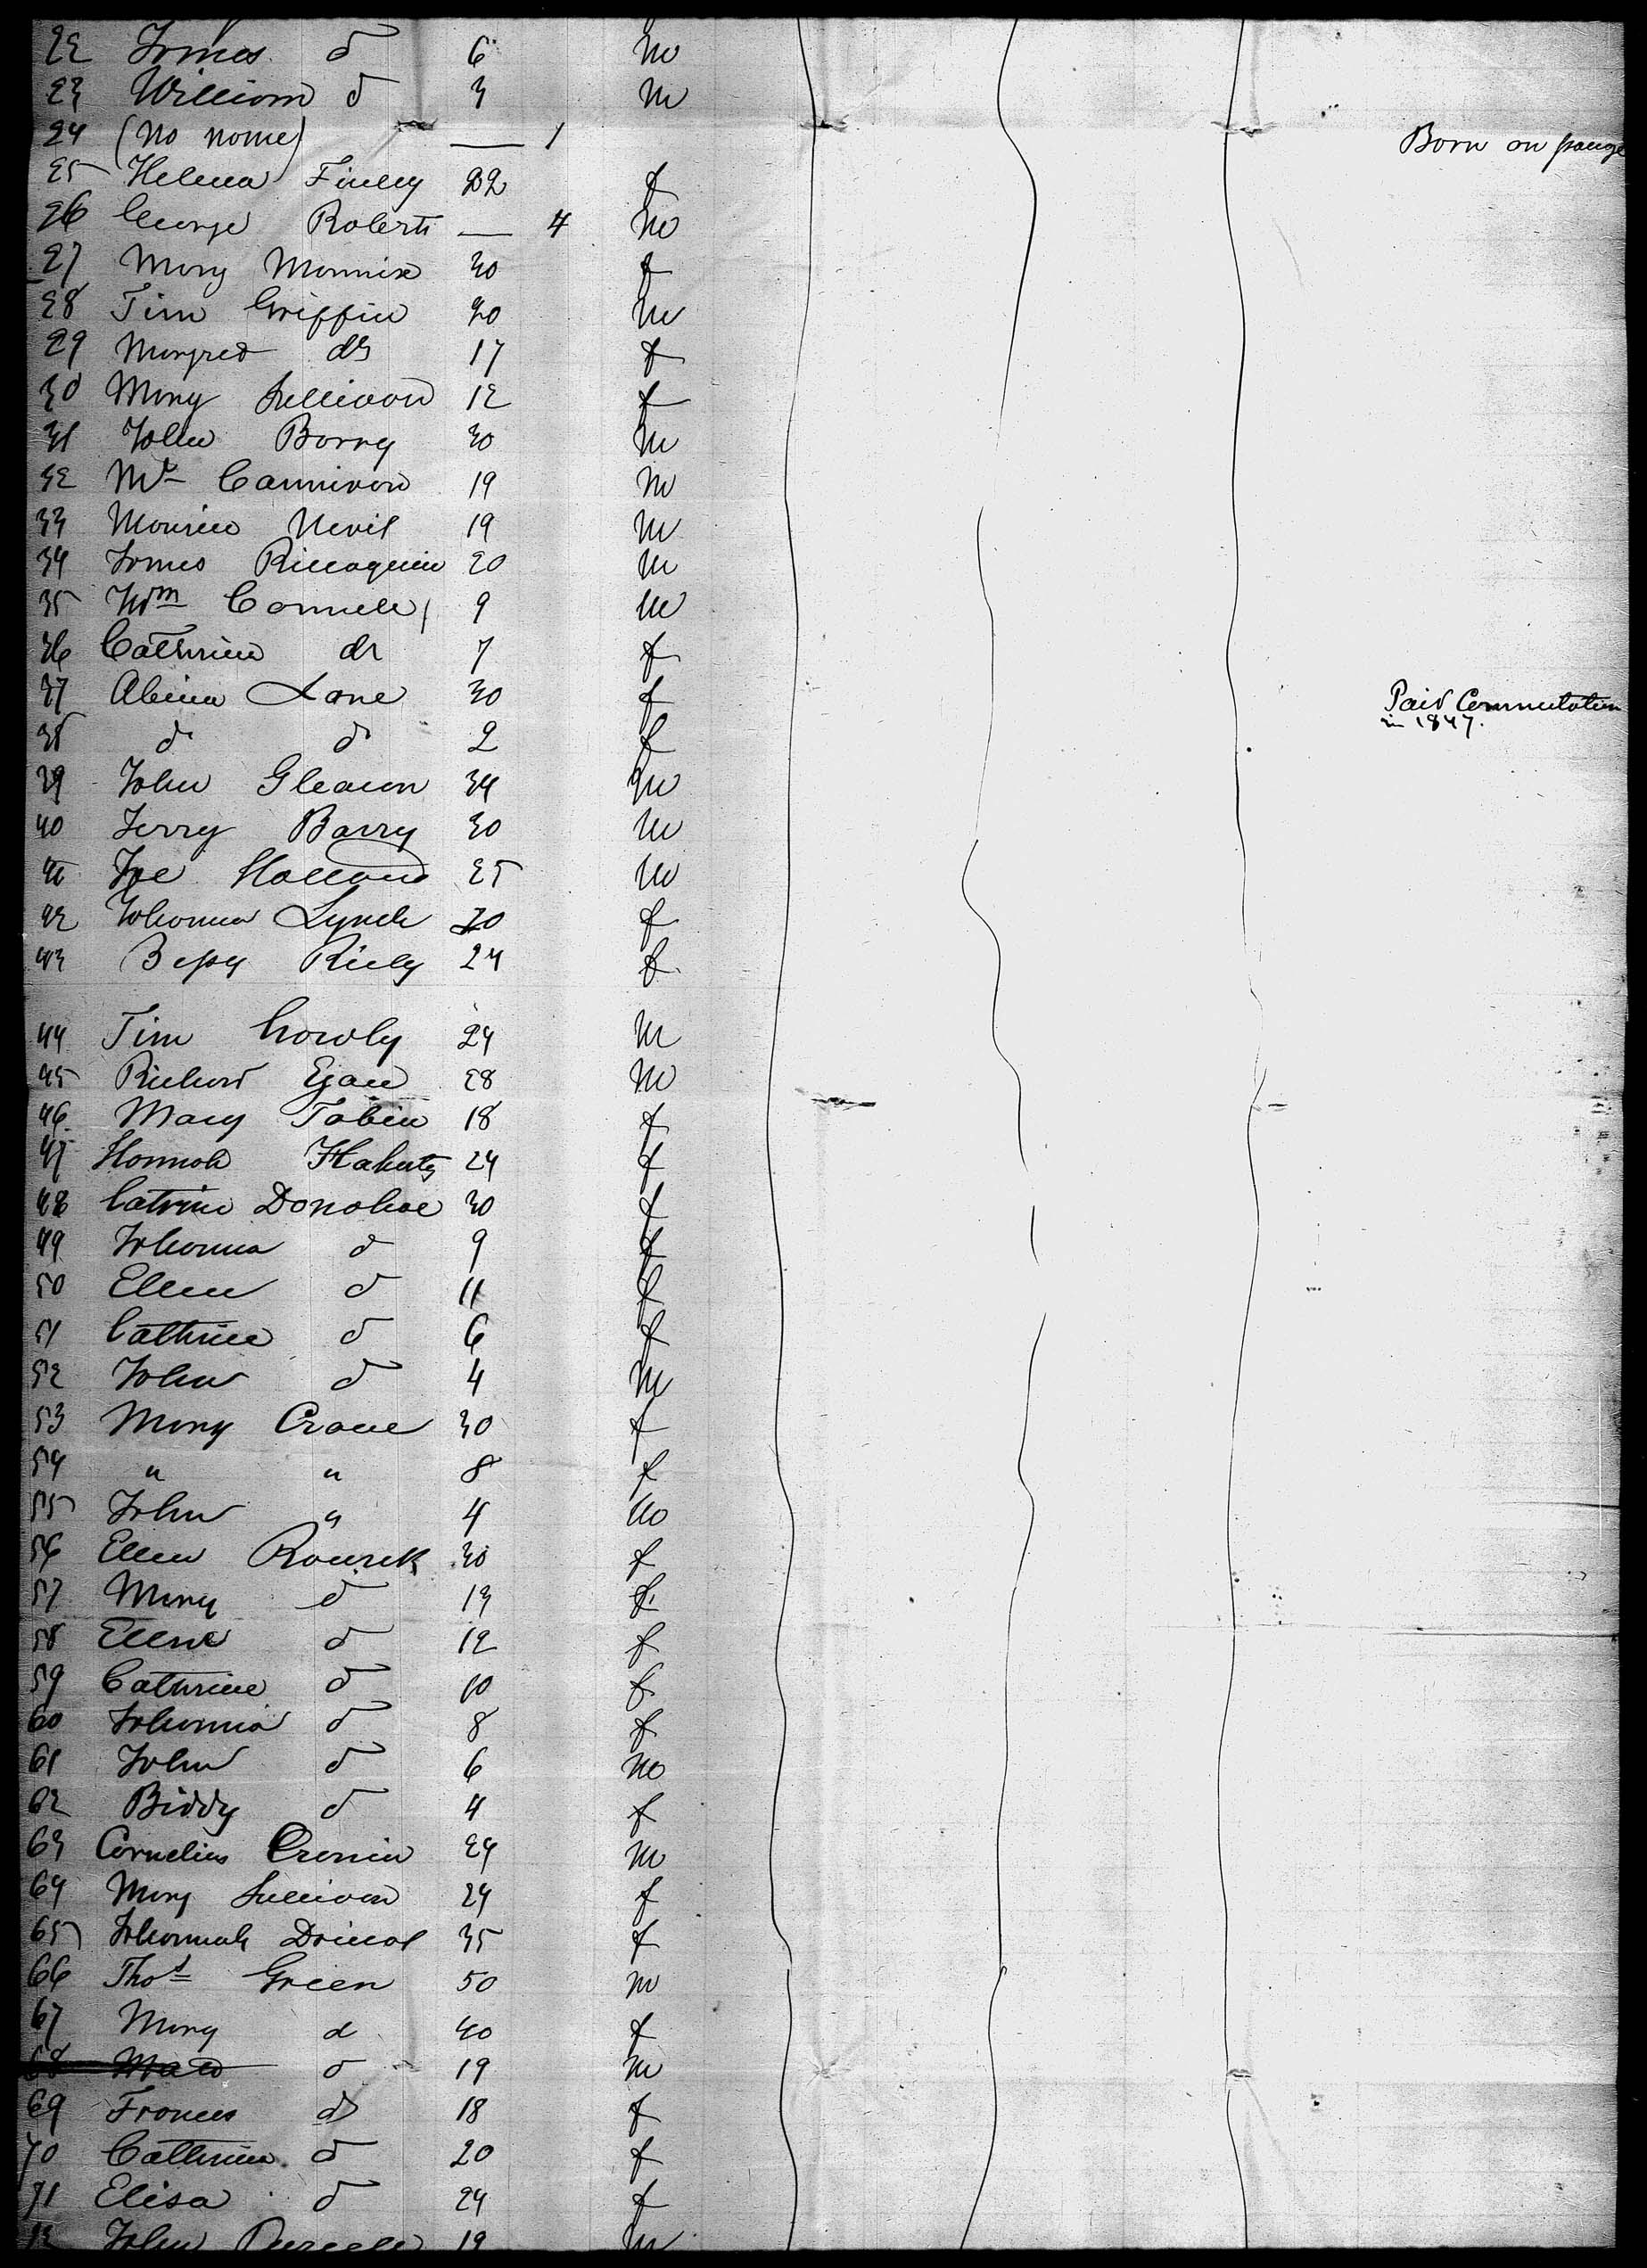 22 James d 6 m
23 William d 3 m
24 (No name) — 1 Born on passage
25 Helena Finley 22 f
26 George Roberts — 4 m
27 Mary Mannix 30 f
28 Tim Griffin 20 m
29 Margred do 17 f
30 Mary Sullivan 12 f
31 John Barry 30 m
32 19 m
33 Maurice Nevil 19 m
34 James 20 m
35 Wm Connell 9 m
36 Cathrine do 7 f
37 Abina Lane 30 f Paid Commutation
in 1847.
38 do do 2 f
39 John Gleason 34 m
40 Jerry Barry 30 m
41 Joe Holland 25 m
42 Johanna Lynch 20 f
43 Bessy Riely 24 f
44 Tim Crowly 24 m
45 Richard Egan 28 m
46 Mary Tobin 18 f
47 Hannah Flaherty 24 f
48 Catrine Donohoe 30 f
49 Johanna d 9 f
50 Ellen d 11 f
51 Cathrine d 6 f
52 John d 4 m
53 Mary Crane 30 f
54 " " 8 f
55 John " 4 m
56 Ellen Rourk 30 f
57 Mary d 13 f
58 Ellen d 12 f
59 Cathrine d 10 f
60 Johanna d 8 f
61 John d 6 m
62 Biddy d 4 f
63 Cornelius Cronin 24 m
64 Mary Sullivan 24 f
65 Johannah 35 f
66 Thos Green 50 m
67 Mary d 40 f
68 d 19 m
69 Frances do 18 f
70 Cathrine d 20 f
71 Elisa d 24 f
72 John Purcell 19 m